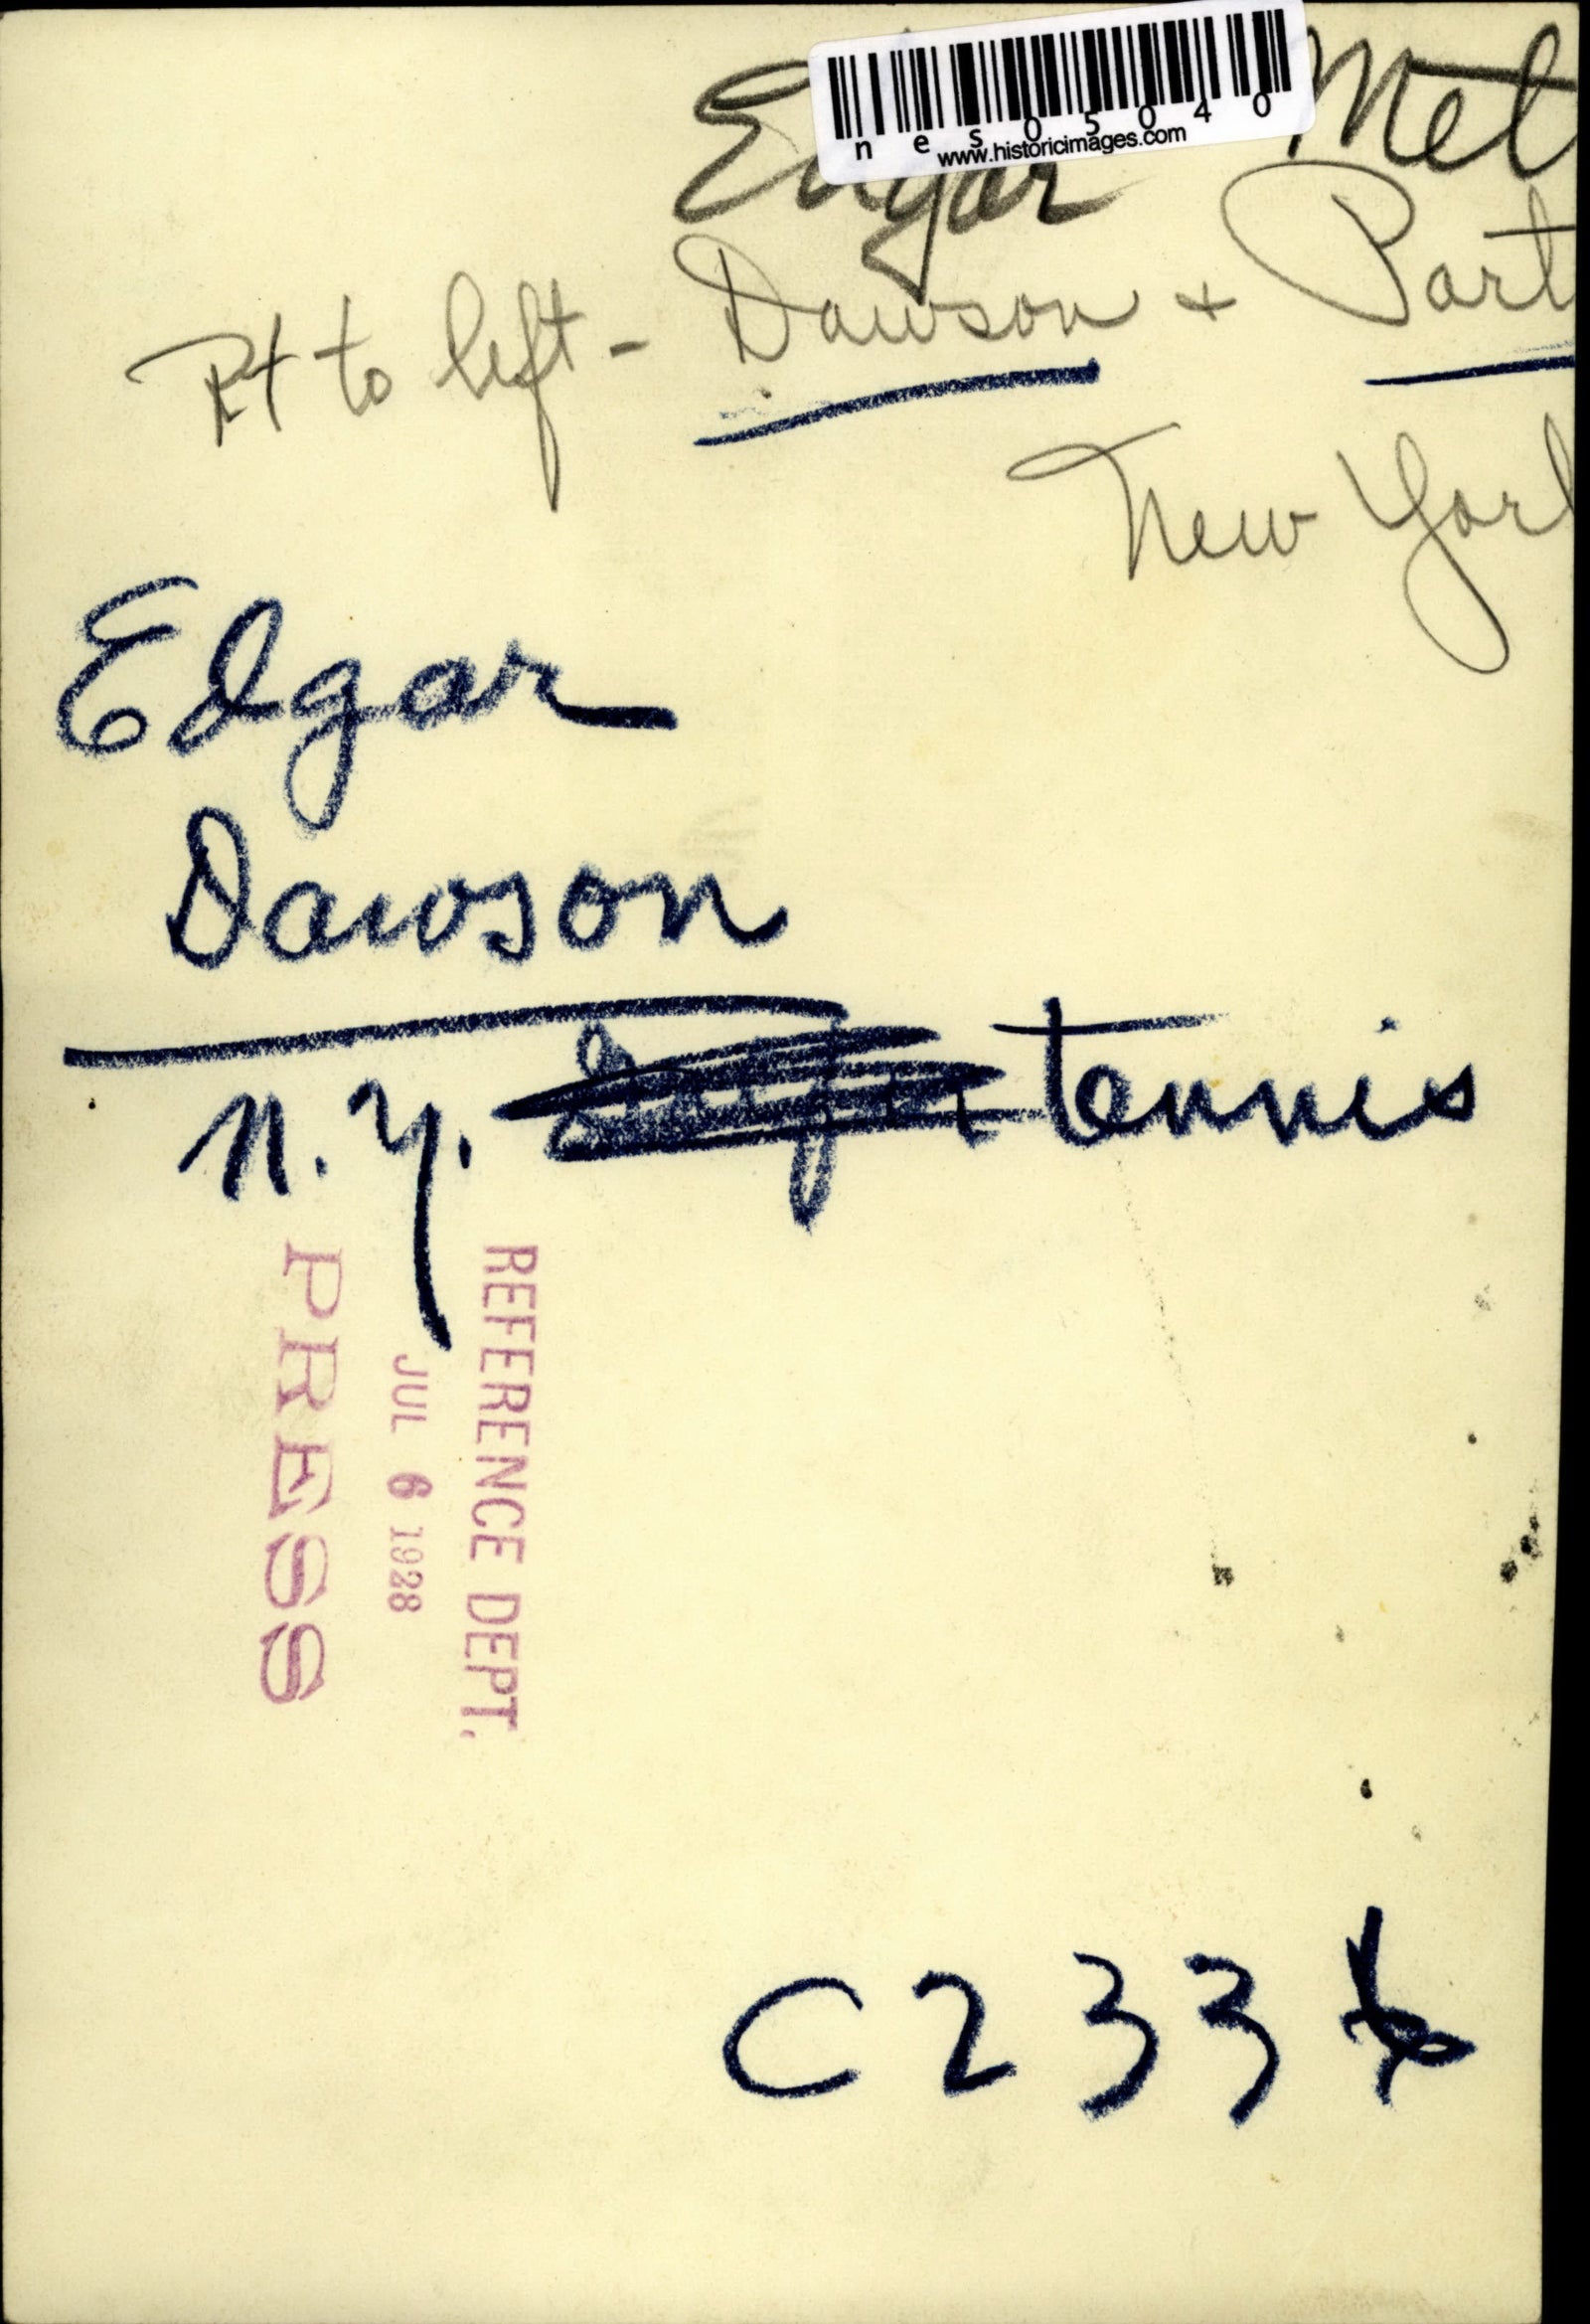 nes05040
www.historicimages.com
Edgar Met
Rt to left - Dawson + Part
New York
Edgar
Dawson
N.Y. tennis
REFERENCE DEPT.
JUL 6 1928
PRESS
C233